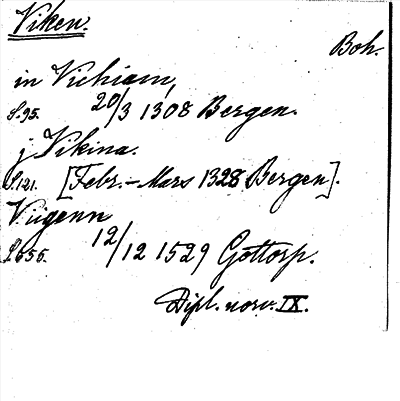 Viken.
Boh.
in Vichiam,
S. 95. 20/3 1308 Bergen.
j Vikina.
S. 121. [Febr. - Mars 1328 Bergen].
Viigenn
S. 655. 12/12 1529 Gottorp.
Dipl. norv. IX.